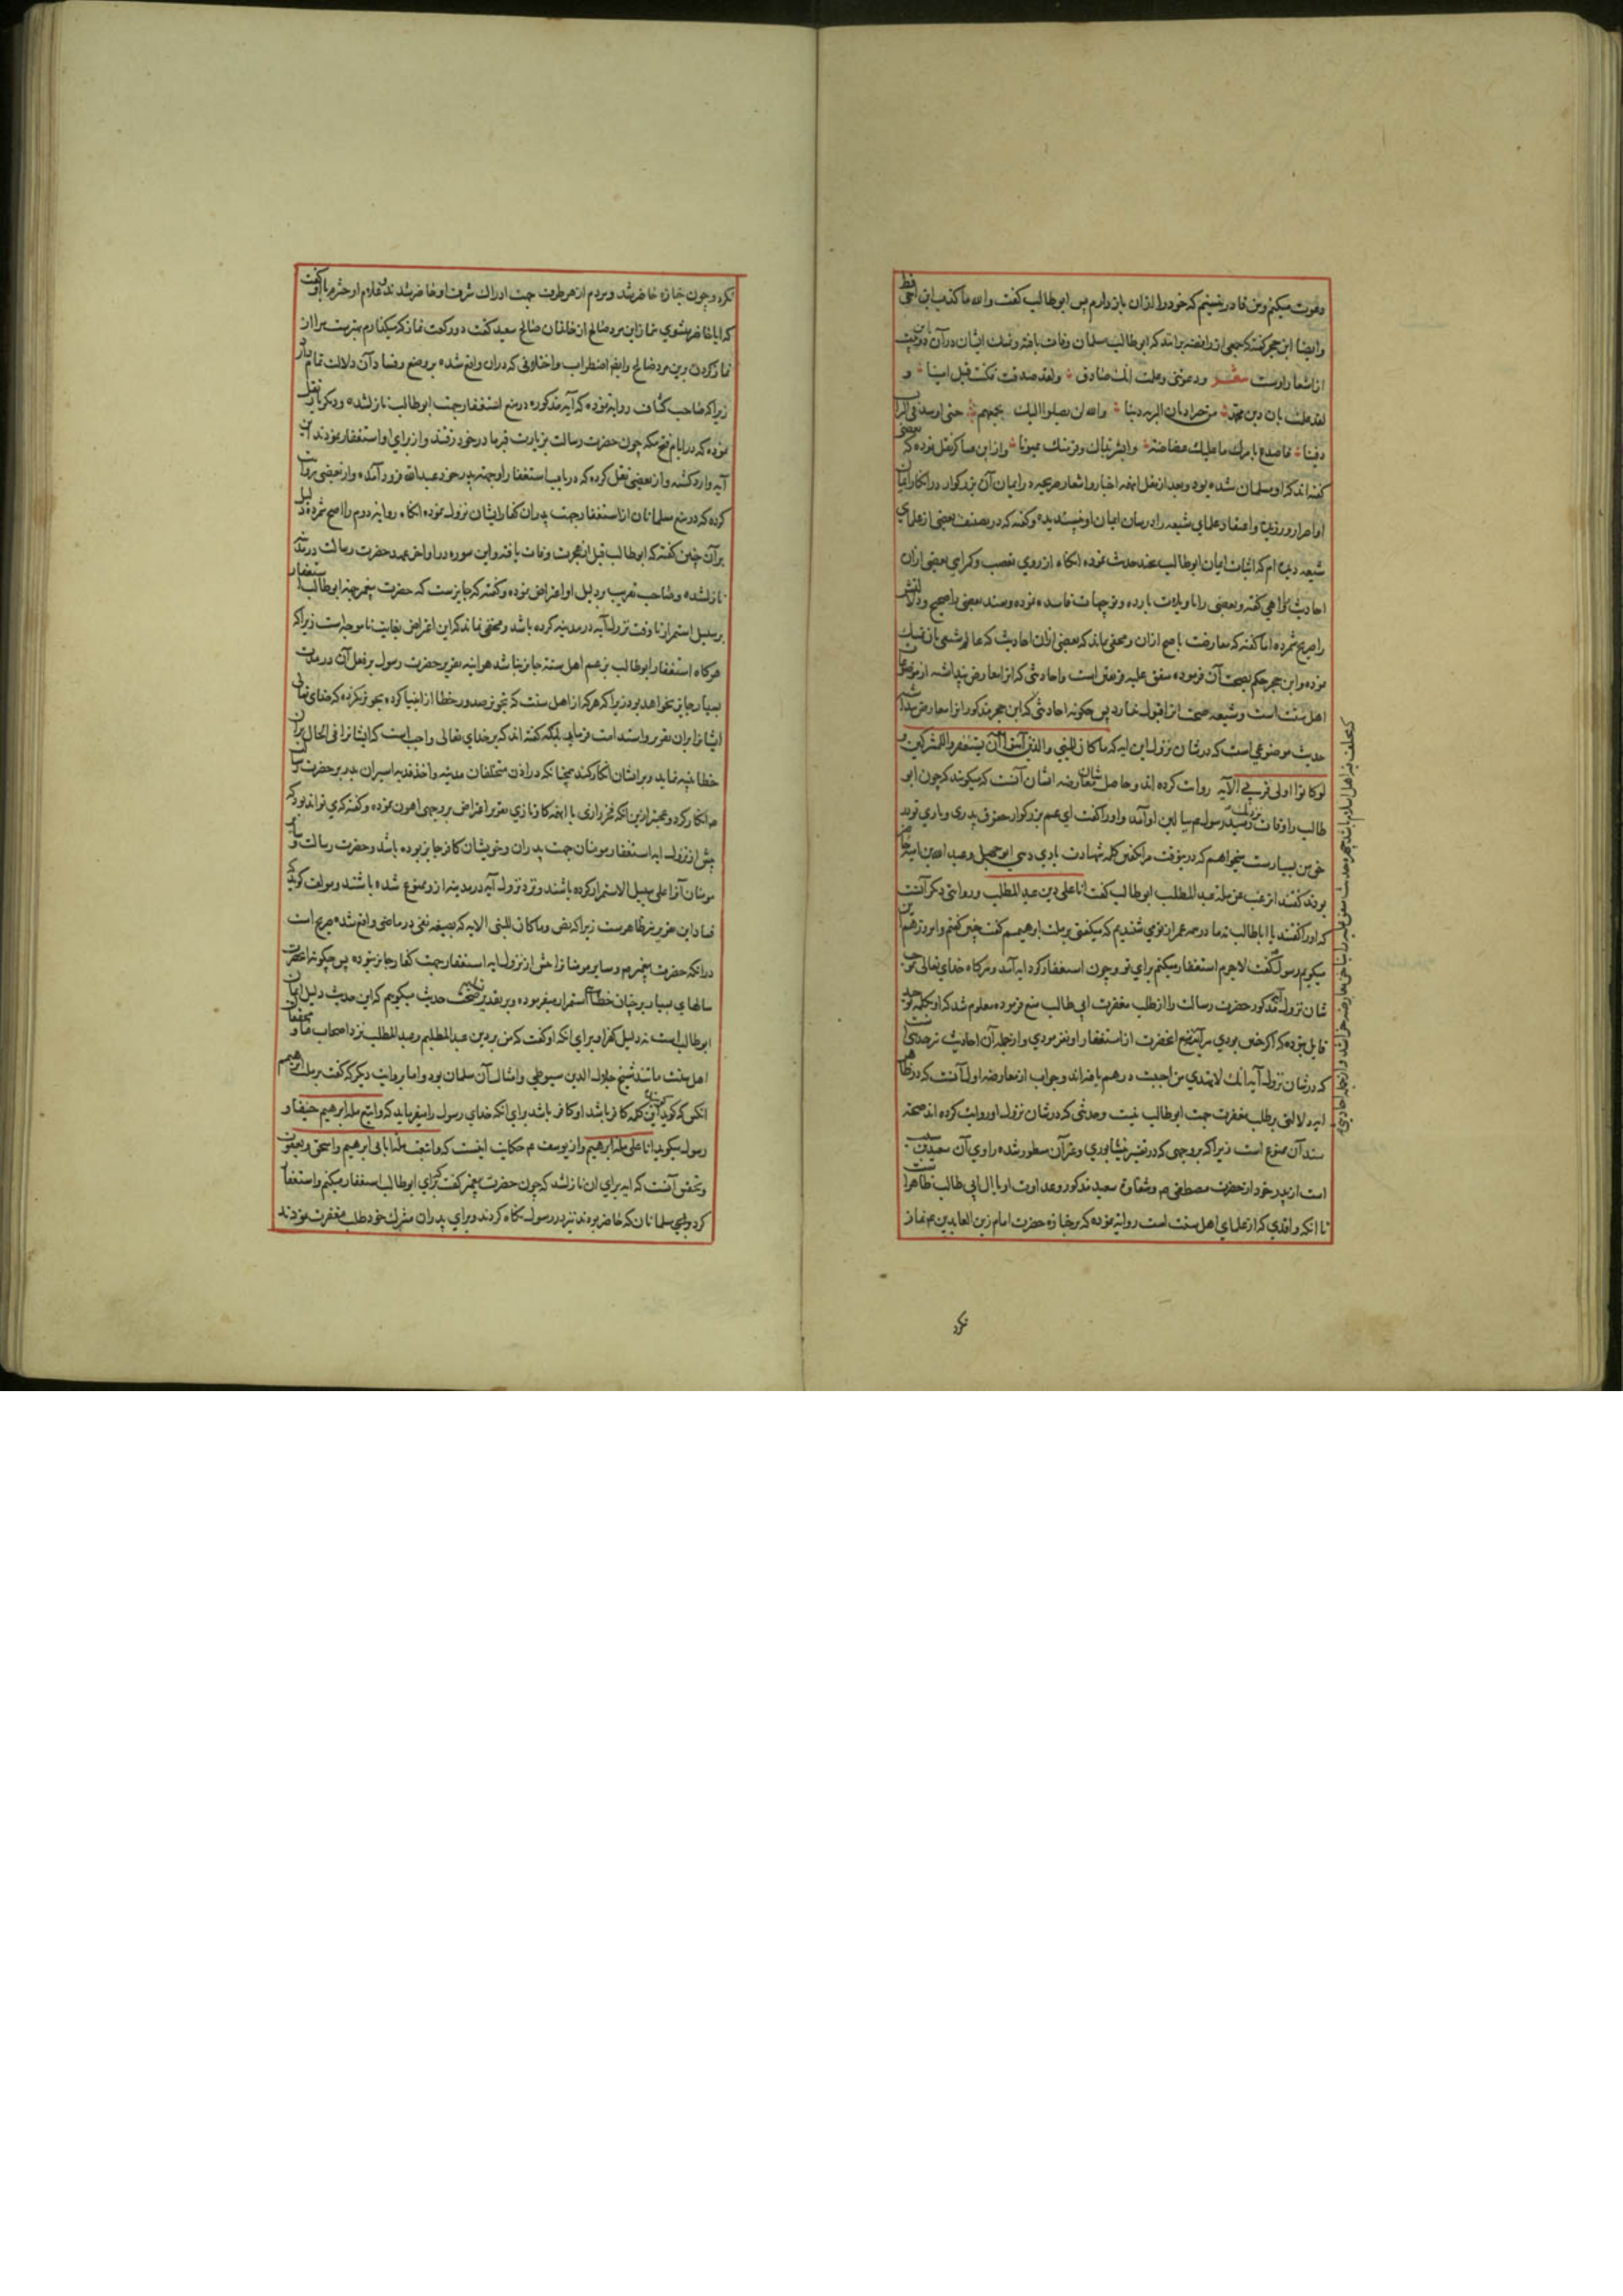 دعوت میکنم ومن قادر نیستم که خود را ازان بازدارم پس ابوطالب کفت والله ما کذب ابن اخی قط
وایضا ابن حجر کفته که جمعی از رافضه برانند که ابوطالب مسلمان وفات یافته وتمسک ایشان درآن باین دو بیت
از اشعار اوست شعر ودعوتنی وعلمت انک صادق ولقد صدقت فکنت قبل امینا و
لقد علمت بان دین محمد من خیر ادیان البریه دینا والله لن یصلوا الیک بجمعهم حتی اوسد فی التراب
دفینا فاصدع بامرک ما علیک غضاضة وابشر بذاک وقر منک عیونا وازابن عساکر نقل نموده که بعضی
کفته اند که او مسلمان شده بود وبعد از نقل اینهمه اخبار واشعار صریحه در ایمان آن بزرکوار در انکار ایمان
او اصرار ورزیده واعتقاد علمای شیعه را در بیان ایمان او نپسندیده وکفته که در تصنیف بعضی از علمای
شیعه دیده ام که اثبات ایمان ابوطالب بچند حدیث نموده انکاه از روی تعصب وکمراهی بعضی ازان
احادیث را واهی کفته وبعضی را تاویلات بارده وتوجیهات فاسده نموده وسند بعضی را صحیح ودلالتش
را صریح شمرده اما کفته که معارضست باصح ازان ومخفی نماند که بعضی ازان احادیث که عالم شیعی بان تمسک
نموده وابن حجر حکم بصحت آن فرموده متفق علیه فریقین است واحادیثی که انرا معارض پنداشته از موضوعات
اهل سنت است وشیعه صحت انرا قبول ندارد پس چکونه احادیثی که ابن حجر مذکور انرا معارض
حدیث موضوعی است که در شان نزول این ایه که ما کان للنبی والذین آمنوا ان یستغفروا للمشرکین و
لو کانوا اولی قربی الآیه روایت کرده اند وحاصل معارضه ایشان آنست که میکویند که چون ابو
طالب را وفات نزدیک رسید رسول م ببالین او آمد واورا کفت ای عم بزرکوار حقوق پدری ویاری تو در
حق من بسیارست میخواهم که در ینوقت مرا بکفتن کلمه شهادت یاری دهی ابوجهل وعبدالله بن امیه حاضر
بودند کفتند اترغب عن ملة عبدالمطلب ابوطالب کفت انا علی دین عبدالمطلب وروایتی دیکر آنست
که اورا کفتند یا اباطالب نه ما در همه عمر از تو می شنیدیم که میکفتی بر ملت ابرهیمم کفت چنین کفتم وامروز هم
میکویم رسول کفت لاجرم استغفار میکنم برای تو وچون استغفار کرد ایه آمد وهرکاه خدای تعالی
شان نزول آیه مذکور حضرت رسالت را از طلب مغفرت ابی طالب منع فرموده معلوم شد که او بکلمه توحید
قایل نبوده که اکر حق بودی مرآینه منع آنحضرت از استغفار او نفرمودی واز جمله آن احادیث حدیثی است
که در شان نزول آیه انک لا تهدی من احببت درهم بافته اند وجواب از معارضه اول آنست که در ظاهر
ایه دلالتی بر طلب مغفرت جهت ابوطالب نیست وحدیثی که در شان نزول او روایت کرده اند صحت
سند آن ممنوع است زیرا که بر وجهی که در تفسیر نیشابوری وغیر آن مسطور شده راوی آن سعید بن مسیب
است از پدر خود از حضرت مصطفی م وشقاوة سعید مذکور وعداوت او با ال ابی طالب ظاهر است
تا انکه واقدی که از علمای اهل سنت است روایة نموده که بر جنازه حضرت امام زین العابدین م نماز
نکرد
نکرد وچون جنازه حاضر شد ومردم از هر طرف جهت ادراک شرف او حاضر شدند غلام او حشرم با او کفت
که ایا حاضر نمیشوی نماز این مرد صالح از خاندان صالح سعید کفت دو رکعت نماز که میکذارم بهترست مرا از
نماز کردن برین مرد صالح وایضا اضطراب واختلافی که دران واقع شده بر وضع وفساد آن دلالت تمام دارد
زیرا که صاحب کشاف روایة نموده که آیه مذکوره در منع استغفار جهت ابوطالب نازل شده ودیکر باز نقل
نموده که در ایام فتح مکه چون حضرت رسالت بزیارت قبر مادر خود رفتند واز برای او استغفار نمودند این
آیه وارد کشته واز بعضی نقل کرده که در باب استغفار او جهة پدر خود عبدالله فرود آمده واز بعضی روایت
کرده که در منع مسلمانان از استغفار جهت پدران کفار ایشان نزول نموده انکاه روایة دوم را اصح شمرده ودلیل
برآن چنین کفته که ابوطالب قبل از هجرت وفات یافته واین سوره در اواخر عهد حضرت رسالت در مدینه
نازل شده وصاحب تقریب بر دلیل او اعتراض نموده وکفته که جایزست که حضرت پیغمبر جهة ابوطالب استغفار
بر سبیل استمرار تا وقت نزول آیه در مدینه کرده باشد ومخفی نماند که این اعتراض بغایت ناموجه است زیرا که
هرکاه استغفار ابوطالب بزعم اهل سنة جایز نباشد هر اینه تقریر حضرت رسول بر فعل آن در مدت
بسیار جایز نخواهد بود زیرا که هرکه از اهل سنت که تجویز صدور خطا از انبیا کرده تجویز نکرده که خدای تعالی
ایشانرا بران تقریر واستدامت فرماید بلکه کفته اند که بر خدای تعالی واجب است که ایشانرا فی الحال بران
خطا تنبیه نماید وبر ایشان انکار کند همچنانکه در اذن متخلفان مدینه واخذ فدیه اسیران بدر بر حضرت رسالت
م انکار کرد وعجبتر ازین انکه فخر رازی با اینهمه کار نازی تقریر اعتراض بر وجهی اهون نموده وکفته که می تواند بود که
پیش از نزول ایه استغفار مومنان جهت پدران وخویشان کافر جایز بوده باشد وحضرت رسالت وسایر
مومنان آنرا علی سبیل الاستمرار کرده باشند ونزد نزول آیه در مدینه از ومنوع شده باشند ومولف کوید
فساد این تقریر نیز ظاهرست زیرا که نص وما کان للنبی الایه که بصیغه نفی در ماضی واقع شده صریح است
درانکه حضرت پیغمبر م وسایر مومنانرا پیش از نزول ایه استغفار جهت کفار جایز نبوده پس چکونه انحضرت
سالهای بسیار بر چنان خطا استمرار میفرموده وبر تقدیر تسلیم صحت حدیث میکویم که این حدیث دلیل ایمان
ابوطالب است نه دلیل کفر او برای انکه او کفت که من بر دین عبدالمطلبم وعبدالمطلب نزد اصحاب ما ومحققان
اهل سنت مانند شیخ جلال الدین سیوطی وامثال آن مسلمان بود واما بروایت دیکر که کفت بر ملت ابرهیمم
انکس که کوید باین کلمه کافر باشد او کافر باشد برای انکه خدای رسول را میفرماید که واتبع ملة ابرهیم حنیفا و
رسول میکوید انا علی ملة ابرهیم واز یوسف م حکایت اینست که واتبعت ملة ابائی ابرهیم واسحق ویعقوب
وتحقیق آنست که ایه برای ان نازل شد که چون حضرت پیغمبر کفت که برای ابوطالب استغفار میکنم واستغفار
کرد وبعضی مسلمانان که حاضر بودند نیز در رسول نکاه کردند وبرای پدران مشرک خود طلب مغفرت نمودند